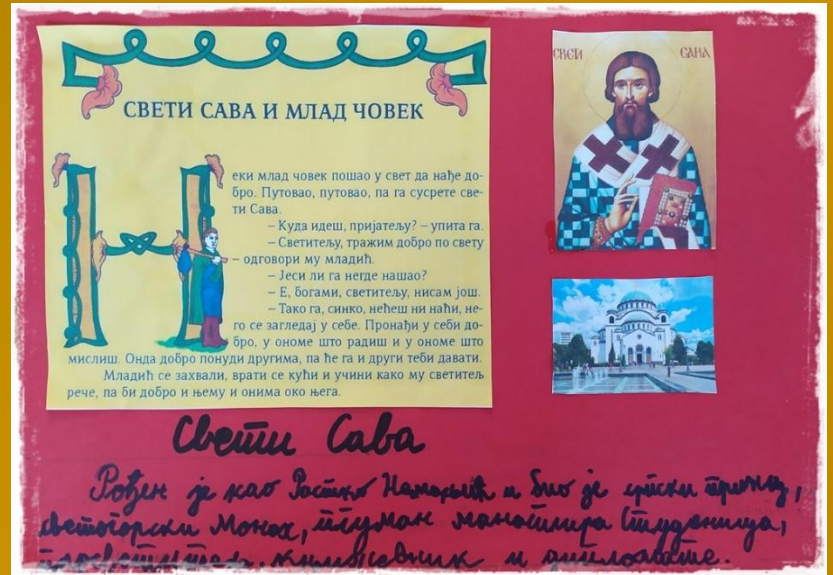 СВЕТИ САВА И МЛАД ЧОВЕК
Неки млад човек пошао у свет да нађе до-
бро. Путовао, путовао, па га сусрете све-
ти Сава.
– Куда идеш, пријатељу? – упита га.
– Светитељу, тражим добро по свету
– одговори му младић.
– Јеси ли га негде нашао?
– Е, богами, светитељу, нисам још.
– Тако га, синко, нећеш ни наћи, не-
го се загледај у себе. Пронађи у себи до-
бро, у ономе што радиш и у ономе што
мислиш. Онда добро понуди другима, па ће га и други теби давати.
Младић се захвали, врати се кући и учини како му светитељ
рече, па би добро и њему и онима око њега.
СВЕТИ САВА
Свети Сава
Рођен је као Растко Немањић и био је српски принц,
светогорски монах, игуман манастира Студеница,
просветитељ, књижевник и дипломате.